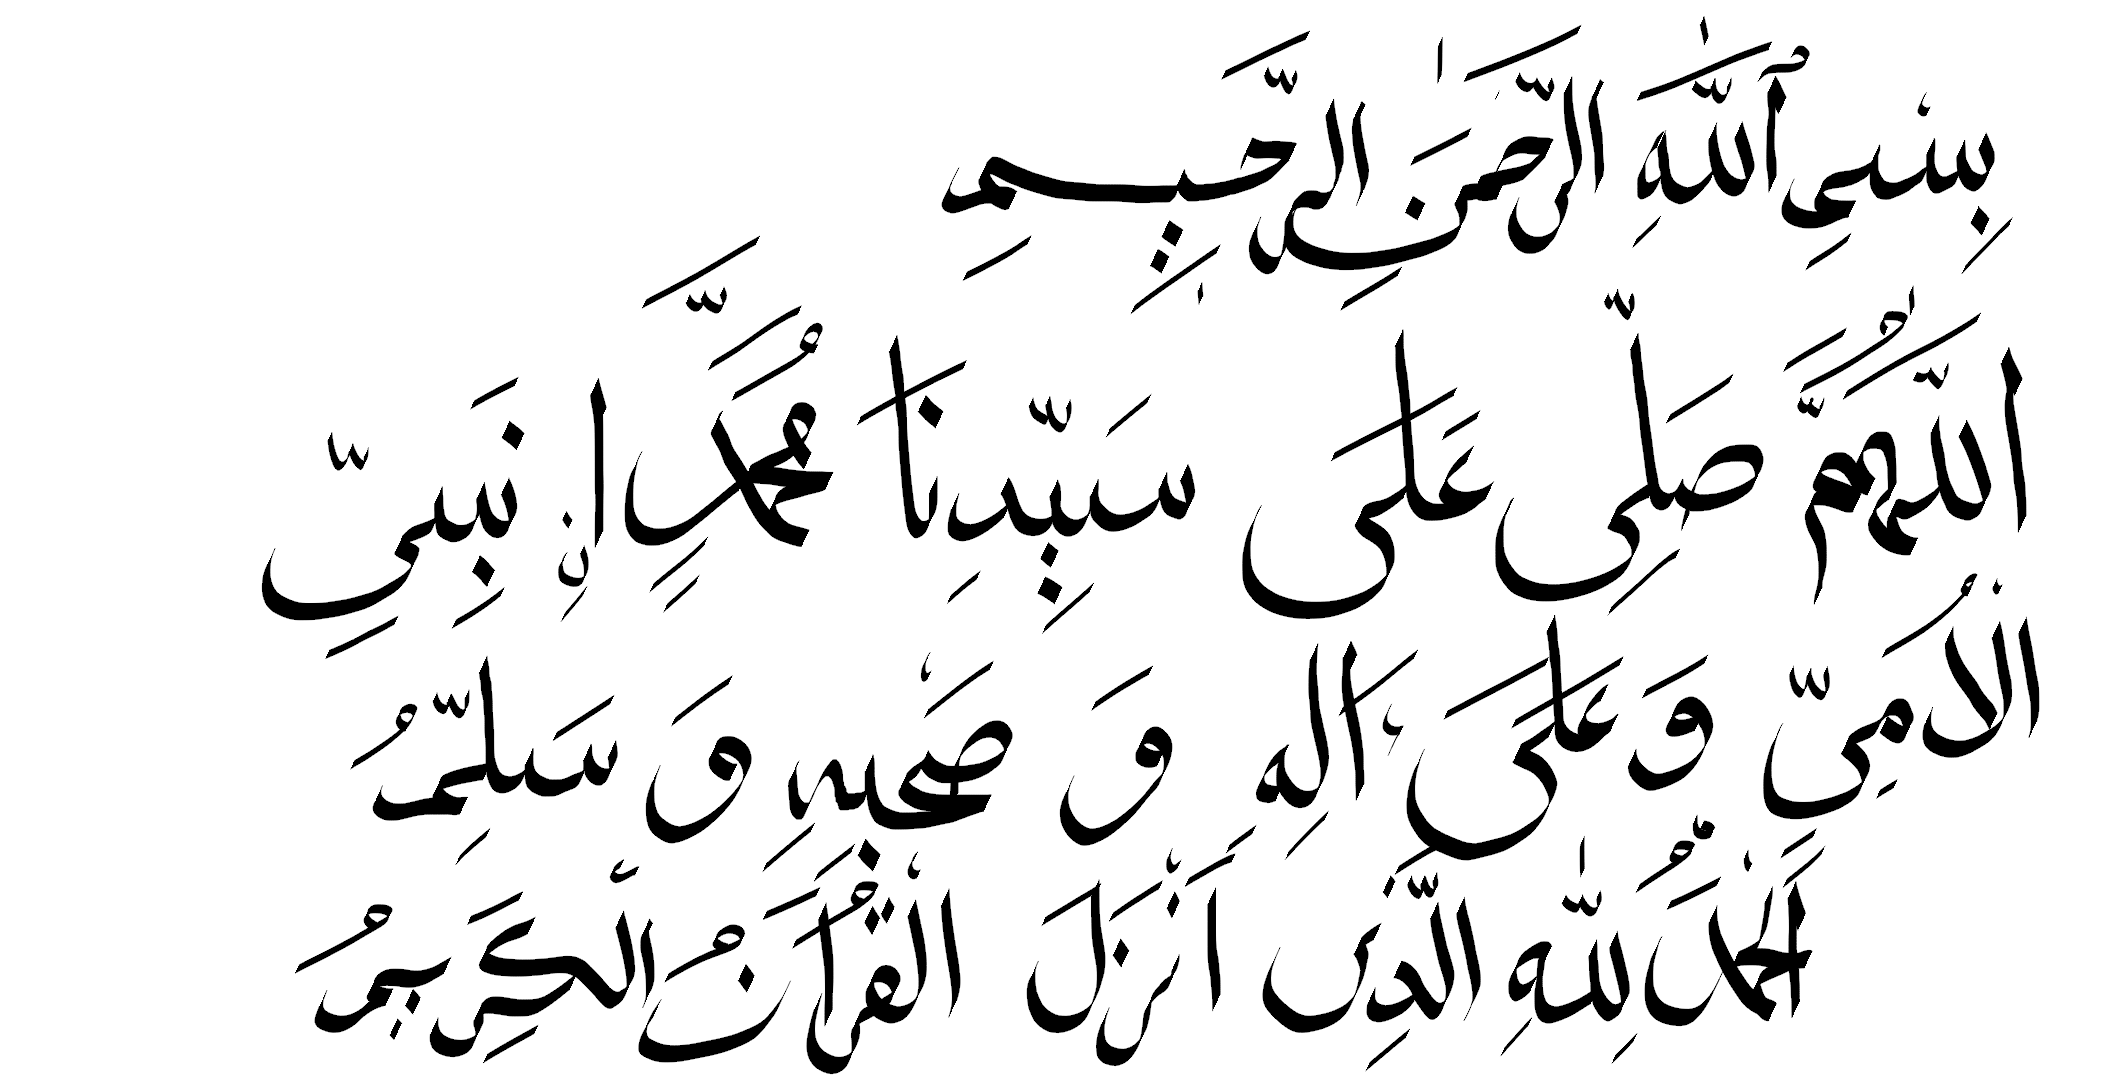 بِسْمِ ٱللَّهِ الرَّحْمَٰنِ الرَّحِيمِ
اللَّهُمَّ صَلِّی عَلَی سَيِّدِنَا مُحَمَّدٍ اۨنَبِیِّ
الْاُمِیِّ وَ عَلَی اٰلِهِ وَ صَحْبِهِ وَ سَلِّمُ
اَلْحَمْدُ لِلّٰهِ الَّذِی اَنْزَلَ الْقُرْاٰنُ الْکَرِیمُ